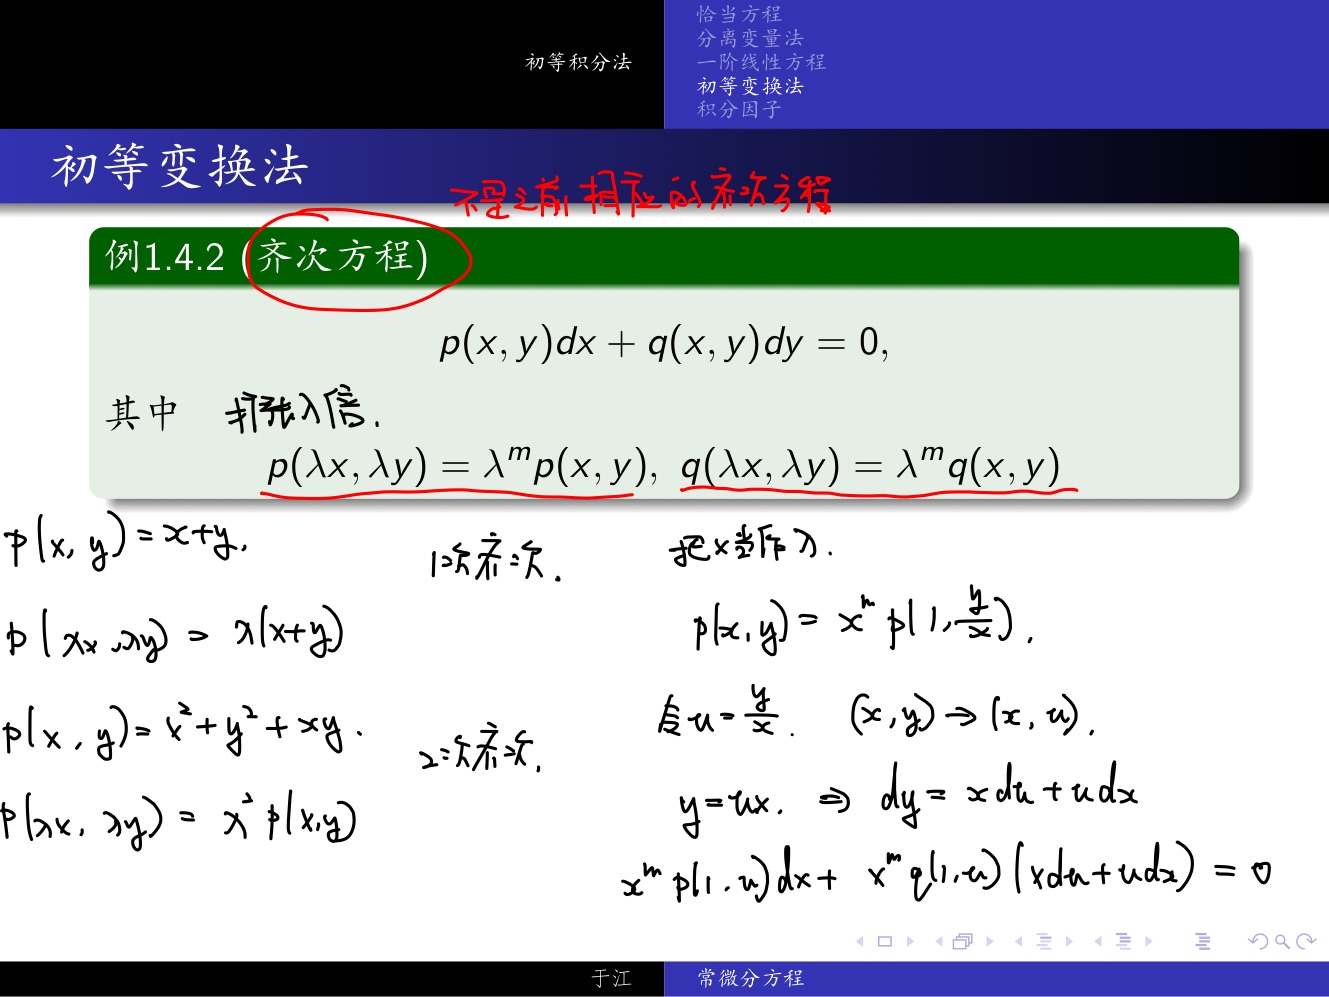 初等积分法
恰当方程
分离变量法
一阶线性方程
初等变换法
积分因子
初等变换法
不是之前相应的齐次方程
例1.4.2 (齐次方程)
p(x, y)dx + q(x, y)dy = 0,
其中 扩张λ倍.
p(λx, λy) = λ^m p(x, y), q(λx, λy) = λ^m q(x, y)
p(x, y) = x+y, 1次齐次.
p(λx, λy) = λ(x+y)
p(x, y) = x²+y²+xy. 2次齐次.
p(λx, λy) = λ² p(x,y)
把x当作λ.
p(x,y) = x^m p(1, y/x).
令u = y/x. (x,y) → (x, u).
y=ux. ⇒ dy = xdu+udx
x^m p(1, u)dx + x^m q(1,u)(xdu+udx) = 0
于江
常微分方程